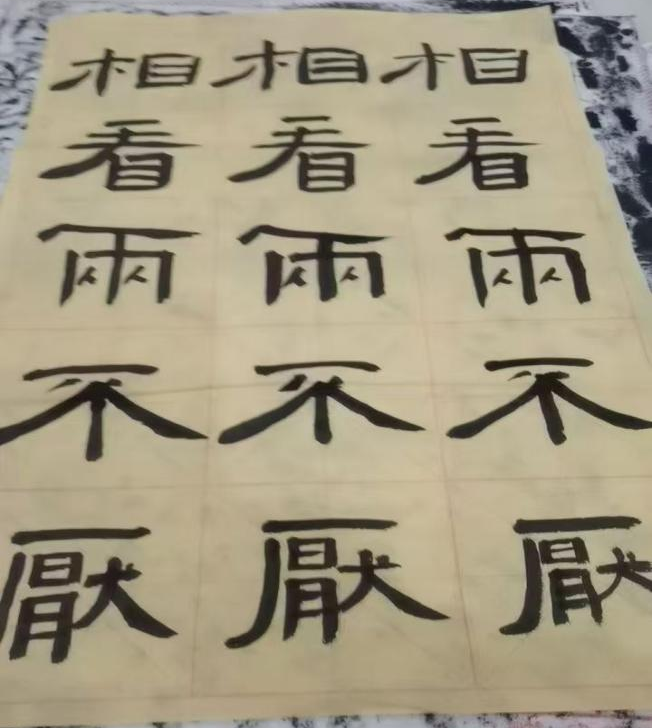 相相相
看看看
兩兩兩
不不不
厭厭厭